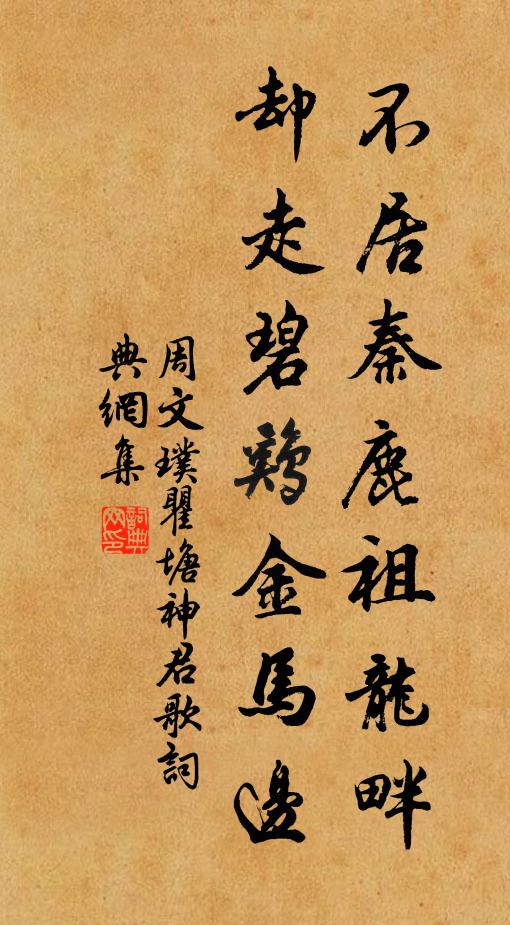 不居秦鹿祖龍畔
却走碧鷄金馬邊
周文璞瞿塘神君歌詞
典網集
詞典網印